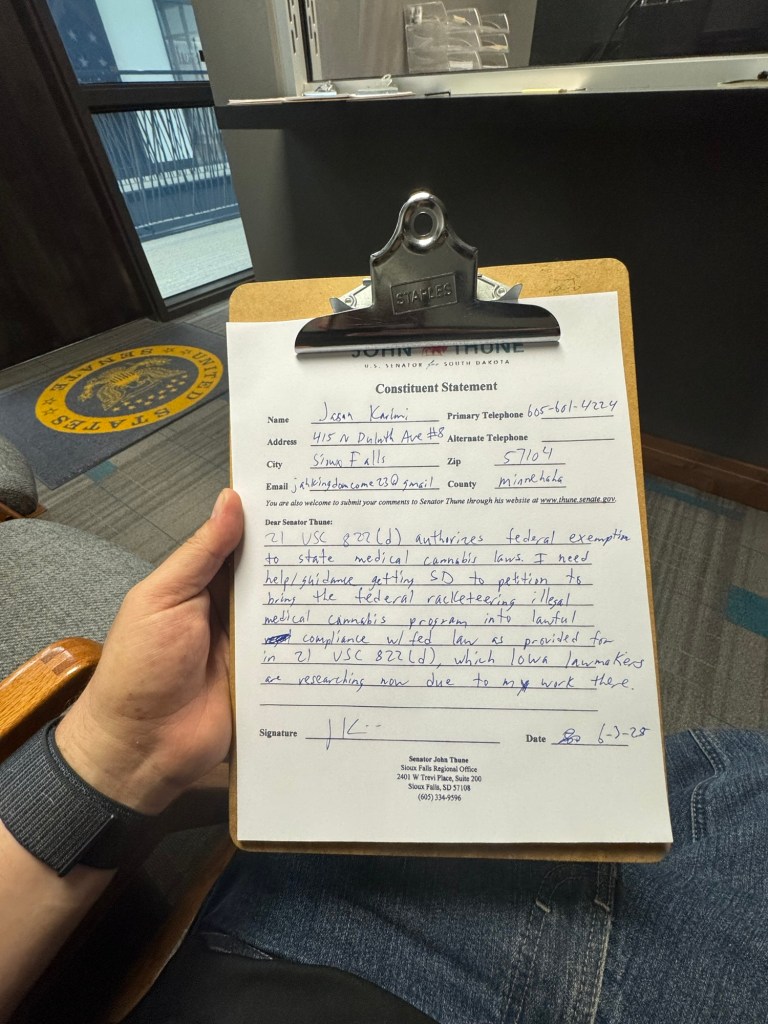 STAPLES
JOHN THUNE
U.S. SENATOR for SOUTH DAKOTA
Constituent Statement
Name Jason Karimi Primary Telephone 605-601-4224
Address 415 N Duluth Ave #8 Alternate Telephone
City Sioux Falls Zip 57104
Email jahkingdomcome23@gmail County minnehaha
You are also welcome to submit your comments to Senator Thune through his website at www.thune.senate.gov.
Dear Senator Thune:
21 USC 822(d) authorizes federal exemption
to state medical cannabis laws. I need
help/guidance getting SD to petition to
bring the federal racketeering illegal
medical cannabis program into lawful
compliance w/ fed law as provided for
in 21 USC 822(d), which Iowa lawmakers
are researching now due to my work there.
Signature Date 6-3-25
Senator John Thune
Sioux Falls Regional Office
2401 W Trevi Place, Suite 200
Sioux Falls, SD 57108
(605) 334-9596
UNITED STATES SENATE